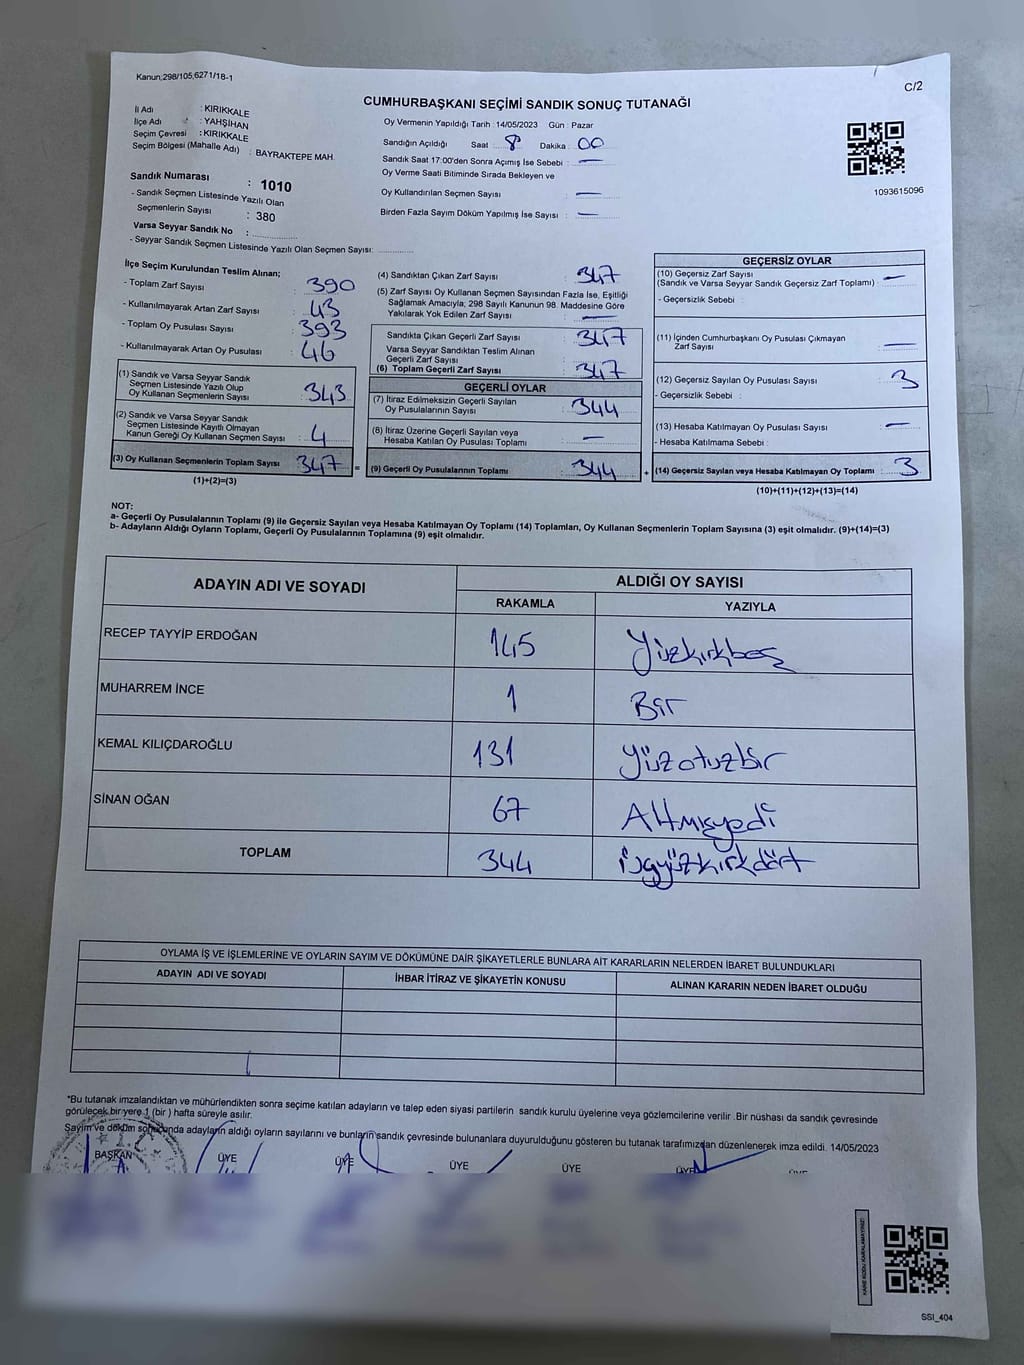 Kanun;298/105,6271/18-1
C/2
CUMHURBAŞKANI SEÇİMİ SANDIK SONUÇ TUTANAĞI
İl Adı : KIRIKKALE
İlçe Adı : YAHŞİHAN
Seçim Çevresi : KIRIKKALE
Seçim Bölgesi (Mahalle Adı) : BAYRAKTEPE MAH.
Sandık Numarası : 1010
- Sandık Seçmen Listesinde Yazılı Olan
Seçmenlerin Sayısı : 380
Varsa Seyyar Sandık No :
- Seyyar Sandık Seçmen Listesinde Yazılı Olan Seçmen Sayısı:
Oy Vermenin Yapıldığı Tarih :14/05/2023 Gün : Pazar
Sandığın Açıldığı Saat : 8 Dakika : 00
Sandık Saat 17:00'den Sonra Açımış İse Sebebi : —
Oy Verme Saati Bitiminde Sırada Bekleyen ve
Oy Kullandırılan Seçmen Sayısı : —
Birden Fazla Sayım Döküm Yapılmış İse Sayısı : —
1093615096
İlçe Seçim Kurulundan Teslim Alınan;
- Toplam Zarf Sayısı : 390
- Kullanılmayarak Artan Zarf Sayısı : 43
- Toplam Oy Pusulası Sayısı : 393
- Kullanılmayarak Artan Oy Pusulası : 46
(1) Sandık ve Varsa Seyyar Sandık
Seçmen Listesinde Yazılı Olup
Oy Kullanan Seçmenlerin Sayısı : 343
(2) Sandık ve Varsa Seyyar Sandık
Seçmen Listesinde Kayıtlı Olmayan
Kanun Gereği Oy Kullanan Seçmen Sayısı : 4
(3) Oy Kullanan Seçmenlerin Toplam Sayısı : 347
(1)+(2)=(3)
(4) Sandıktan Çıkan Zarf Sayısı : 347
(5) Zarf Sayısı Oy Kullanan Seçmen Sayısından Fazla İse, Eşitliği
Sağlamak Amacıyla; 298 Sayılı Kanunun 98. Maddesine Göre
Yakılarak Yok Edilen Zarf Sayısı : —
Sandıkta Çıkan Geçerli Zarf Sayısı : 347
Varsa Seyyar Sandıktan Teslim Alınan
Geçerli Zarf Sayısı : —
(6) Toplam Geçerli Zarf Sayısı : 347
GEÇERLİ OYLAR
(7) İtiraz Edilmeksizin Geçerli Sayılan
Oy Pusulalarının Sayısı : 344
(8) İtiraz Üzerine Geçerli Sayılan veya
Hesaba Katılan Oy Pusulası Toplamı : —
= (9) Geçerli Oy Pusulalarının Toplamı : 344
GEÇERSİZ OYLAR
(10) Geçersiz Zarf Sayısı
(Sandık ve Varsa Seyyar Sandık Geçersiz Zarf Toplamı) : —
- Geçersizlik Sebebi :
(11) İçinden Cumhurbaşkanı Oy Pusulası Çıkmayan
Zarf Sayısı : —
(12) Geçersiz Sayılan Oy Pusulası Sayısı : 3
- Geçersizlik Sebebi :
(13) Hesaba Katılmayan Oy Pusulası Sayısı : —
- Hesaba Katılmama Sebebi :
+ (14) Geçersiz Sayılan veya Hesaba Katılmayan Oy Toplamı : 3
(10)+(11)+(12)+(13)=(14)
NOT:
a- Geçerli Oy Pusulalarının Toplamı (9) ile Geçersiz Sayılan veya Hesaba Katılmayan Oy Toplamı (14) Toplamları, Oy Kullanan Seçmenlerin Toplam Sayısına (3) eşit olmalıdır. (9)+(14)=(3)
b- Adayların Aldığı Oyların Toplamı, Geçerli Oy Pusulalarının Toplamına (9) eşit olmalıdır.
ADAYIN ADI VE SOYADI ALDIĞI OY SAYISI
RAKAMLA YAZIYLA
RECEP TAYYİP ERDOĞAN 145 Yüzkırkbeş
MUHARREM İNCE 1 Bir
KEMAL KILIÇDAROĞLU 131 Yüzotuzbir
SİNAN OĞAN 67 Altmışyedi
TOPLAM 344 üçyüzkırkdört
OYLAMA İŞ VE İŞLEMLERİNE VE OYLARIN SAYIM VE DÖKÜMÜNE DAİR ŞİKAYETLERLE BUNLARA AİT KARARLARIN NELERDEN İBARET BULUNDUKLARI
ADAYIN ADI VE SOYADI İHBAR İTİRAZ VE ŞİKAYETİN KONUSU ALINAN KARARIN NEDEN İBARET OLDUĞU
*Bu tutanak imzalandıktan ve mühürlendikten sonra seçime katılan adayların ve talep eden siyasi partilerin sandık kurulu üyelerine veya gözlemcilerine verilir .Bir nüshası da sandık çevresinde
görülecek bir yere 1 (bir ) hafta süreyle asılır.
Sayım ve döküm sonucunda adayların aldığı oyların sayılarını ve bunların sandık çevresinde bulunanlara duyurulduğunu gösteren bu tutanak tarafımızdan düzenlenerek imza edildi. 14/05/2023
BAŞKAN ÜYE ÜYE ÜYE ÜYE ÜYE ÜYE
KARE KODU KARALAMAYINIZ!
SSI_404